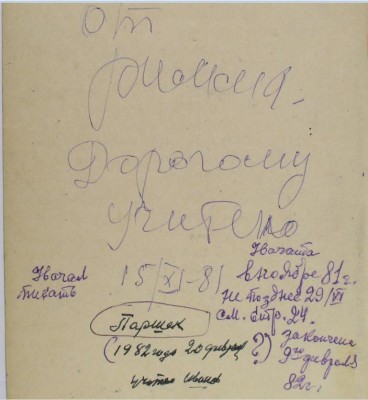 От
Дорогому
учителю
Начата
Начал
писать
15/XI-81
в ноябре 81 г.
не позднее 29/XI
см. стр. 24.
Паршек
(1982 года 20 февраля
(?)
закончена
9го февраля
82 г.
учитель Иванов